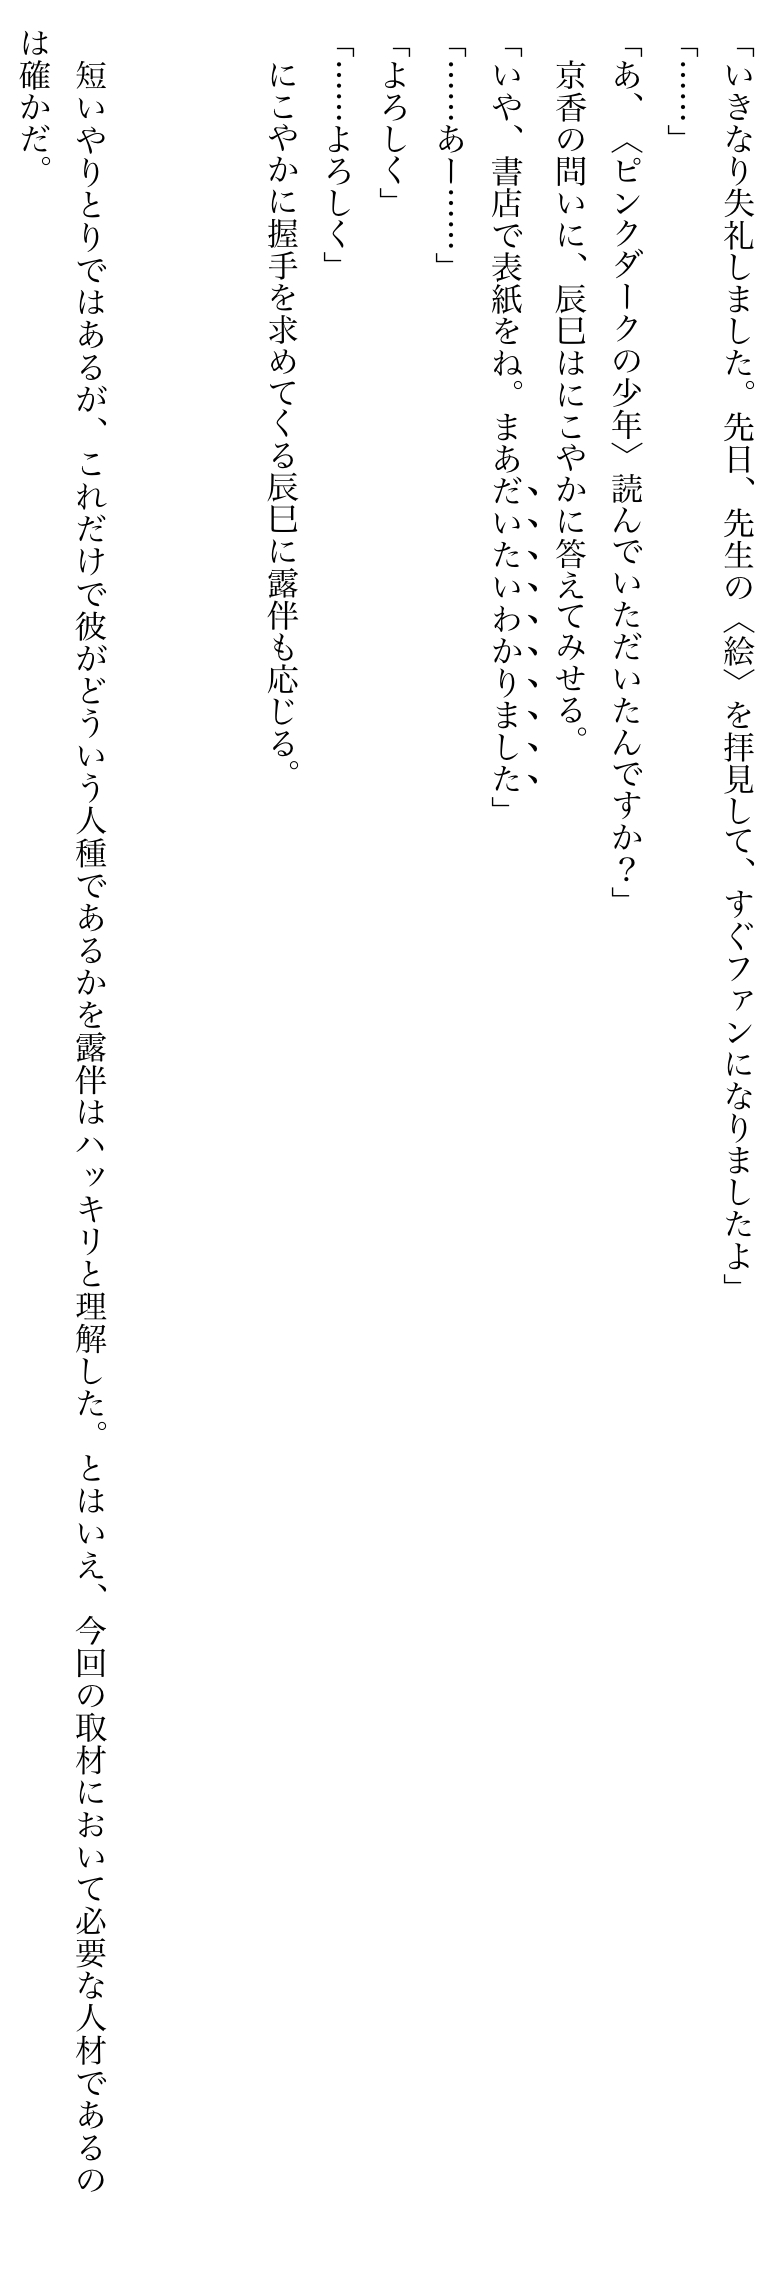 「いきなり失礼しました。先日、先生の〈絵〉を拝見して、すぐファンになりましたよ」
「……」
「あ、〈ピンクダークの少年〉読んでいただいたんですか？」
　京香の問いに、辰巳はにこやかに答えてみせる。
「いや、書店で表紙をね。まあだいたいわかりました」
「……あー……」
「よろしく」
「……よろしく」
　にこやかに握手を求めてくる辰巳に露伴も応じる。
　短いやりとりではあるが、これだけで彼がどういう人種であるかを露伴はハッキリと理解した。とはいえ、今回の取材において必要な人材であるの
は確かだ。